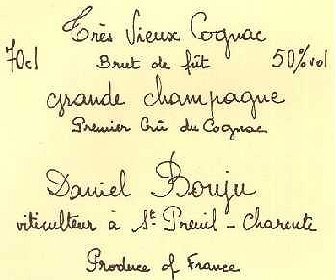 Très Vieux Cognac
70cl Brut de fût 50%vol
grande champagne
Premier Crû du Cognac
Daniel Bouju
viticulteur à St Preuil - Charente
Produce of France